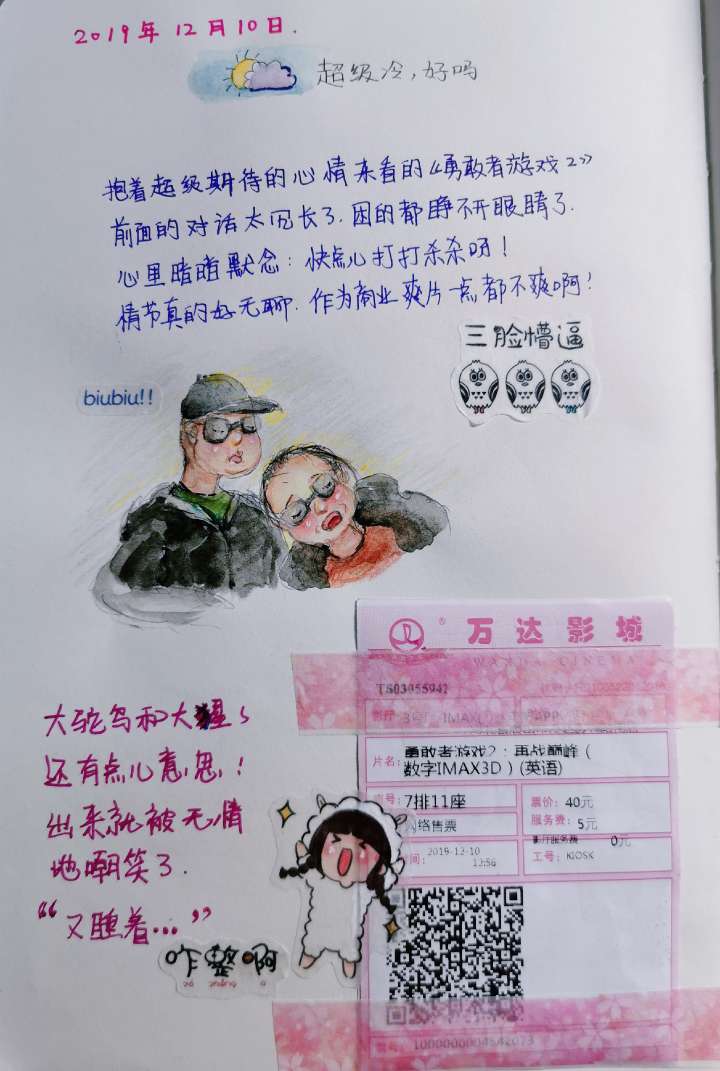 2019年12月10日.
超级冷,好吗
抱着超级期待的心情来看的《勇敢者游戏2》
前面的对话太冗长了.困的都睁不开眼睛了.
心里暗暗默念:快点儿打打杀杀呀!
情节真的好无聊.作为商业爽片一点都不爽啊!
三脸懵逼
biubiu!!
万达影城
WANDA CINEMA
TS03055941
IMAX
APP
片名:勇敢者游戏2:再战巅峰(
数字IMAX3D)(英语)
7排11座
票价:40元
网络售票
服务费:5元
影厅服务费 0元
2019-12-10
12:56
工号:KIOSK
大鸵鸟和大
还有点儿意思!
出来就被无情
地嘲笑了.
“又睡着...”
咋整啊
zǎ zhěng a